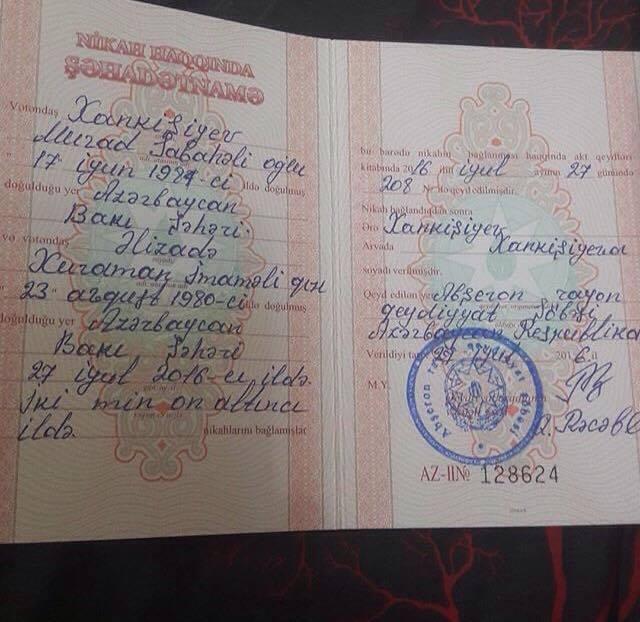 NİKAH HAQQINDA
ŞƏHADƏTNAMƏ
Vətəndaş Xankişiyev
Murad Sabahəli oğlu
" 17 " iyun 1984-ci ildə doğulmuş
doğulduğu yer Azərbaycan
Bakı şəhəri.
və vətəndaş Əlizadə
soyadı
Xuraman İmaməli qızı
" 23 " avqust 1980-ci ildə doğulmuş
doğulduğu yer Azərbaycan
Bakı şəhəri
27 iyul 2016-cı ildə.
İki min on altıncı
ildə. nikahlarını bağlamışlar
bu barədə nikahın bağlanması haqqında akt qeydləri
kitabında 2016 ilin iyul ayının 27 günündə
208 № ilə qeyd edilmişdir.
Nikah bağlandıqdan sonra
Ərə Xankişiyev
Arvada Xankişiyeva
soyadı verilmişdir.
Qeyd edilən yer Abşeron rayon
qeydiyyat şöbəsi
Azərbaycan Respublika
Verildiyi tarix 27 iyul 2016 il
M.Y.
Q. Rəcəbl
AZ-II№ 128624